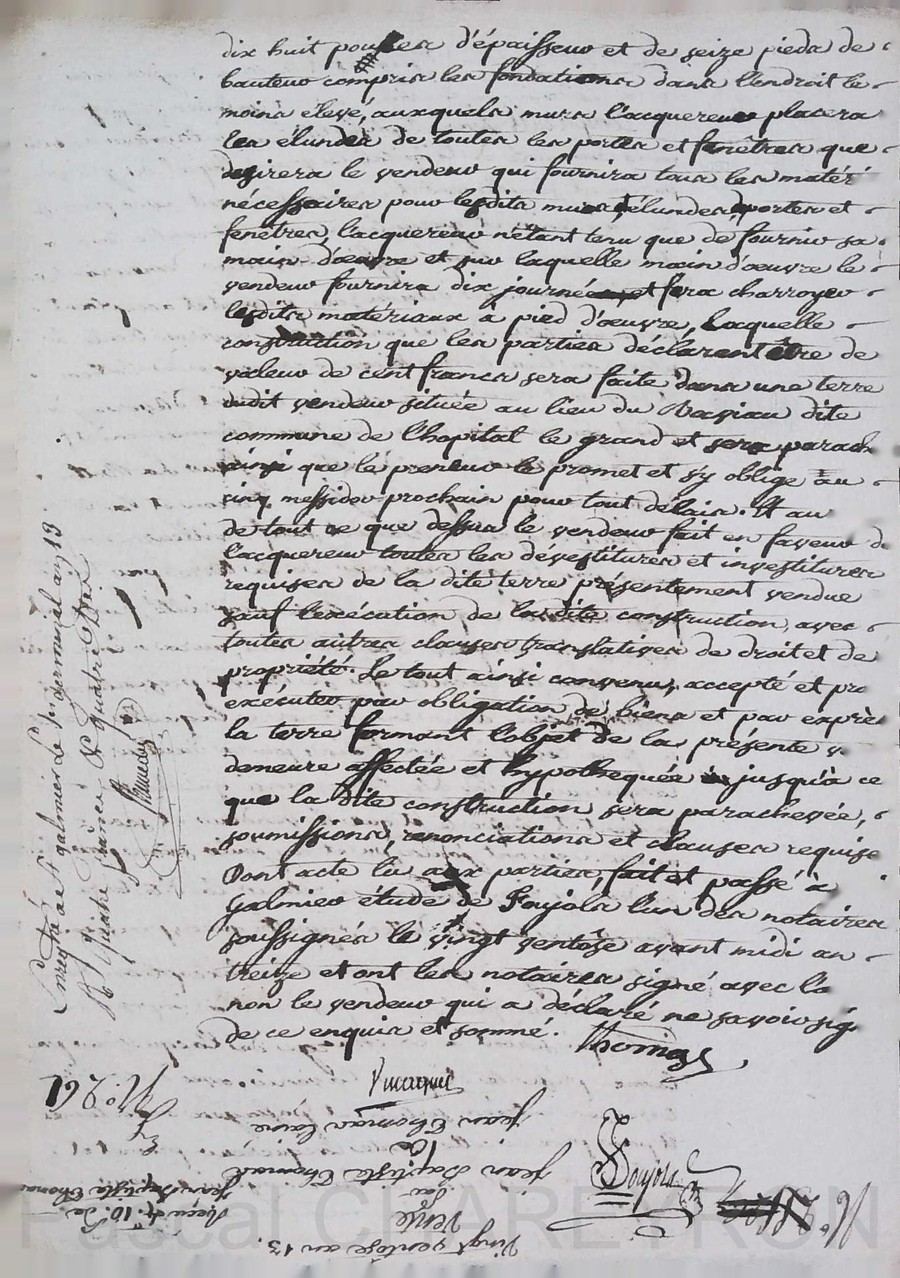 dix huit pouces d'épaisseur et de seize pieds de
hauteur compris les fondations dans l'endroit le
moins élevé, auxquels murs l'acquereur placera
les élundes de toutes les portes et fenêtres que
desirera le vendeur qui fournira tous les matér
nécessaires pour lesdits murs, élundes, portes et
fenêtres, l'acquereur n'étant tenu que de fournir sa
main d'œuvre et sur laquelle main d'œuvre le
vendeur fournira dix journées et fera charroyer
lesdits matériaux à pied d'œuvre, Laquelle
construction que les parties déclarent être de
valeur de cent francs sera faite dans une terre
dudit vendeur située au lieu du dite
commune de l'hopital le grand et sera parach
ainsi que le preneur le promet et s'y oblige au
cinq messidor prochain pour tout délais. Et au
de tout ce que dessus le vendeur fait en faveur d
l'acquereur toutes les dévestitures et investitures
requises de la dite terre présentement vendue
sauf l'exécution de la dite construction, avec
toutes autres clauses translatives de droit et de
propriété. Le tout ainsi convenu, accepté et pro
exécuter par obligation de biens et par exprès
la terre formant l'objet de la présente v
demeure affectée et hypothequée jusqu'à ce
que la dite construction sera parachevée,
soumissions, renonciations et clauses requise
Dont acte lu aux parties, fait et passé à
galmier étude de Foujols l'un des notaires
soussignés le vingt ventôse avant midi an
treize et ont les notaires signé avec l'a
non le vendeur qui a déclaré ne savoir sig
de ce enquis et sommé.
Thomas
Foujols
Enregistré à St galmier le germinal an 13
Rt quatre francs & quatre
N.o 261
Jean Thomas laine
Jean Baptiste Thomas
Par
Vente
Vingt ventôse an 13.
Jean Baptiste Thomas
Pascal CHARETRON